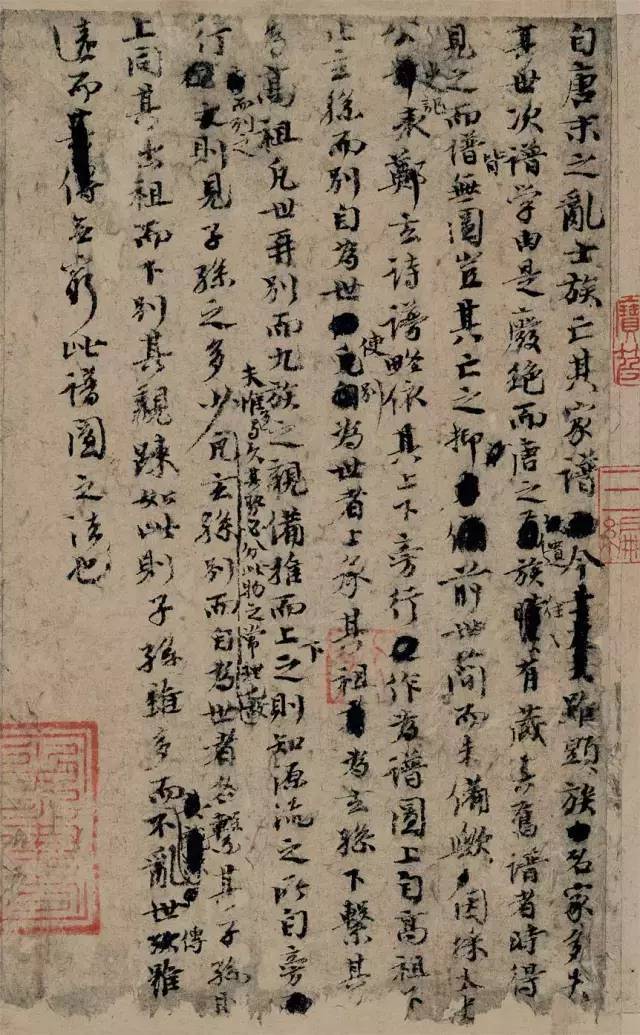 自唐末之亂士族亡其家譜今雖顯族名家多失
其世次譜学由是廢絶而唐之遺族往往有藏其舊譜者時得
見之而譜皆無圖豈其亡之抑前世簡而未備歟因採太史
公史記表鄭玄詩譜略依其上下旁行作為譜圖上自高祖下
止玄孫而別自為世使別為世者上承其祖為玄孫下繫其
為高祖凡世再別而九族之親備推而上下之則知源流之所自旁
行而列之則見子孫之多少夫惟多與久其勢必分此物之常理凡玄孫別而自為世者各繫其子孫
上同其出祖而下別其親踈如此則子孫雖多而不亂世傳雖
遠而無窮此譜圖之法也